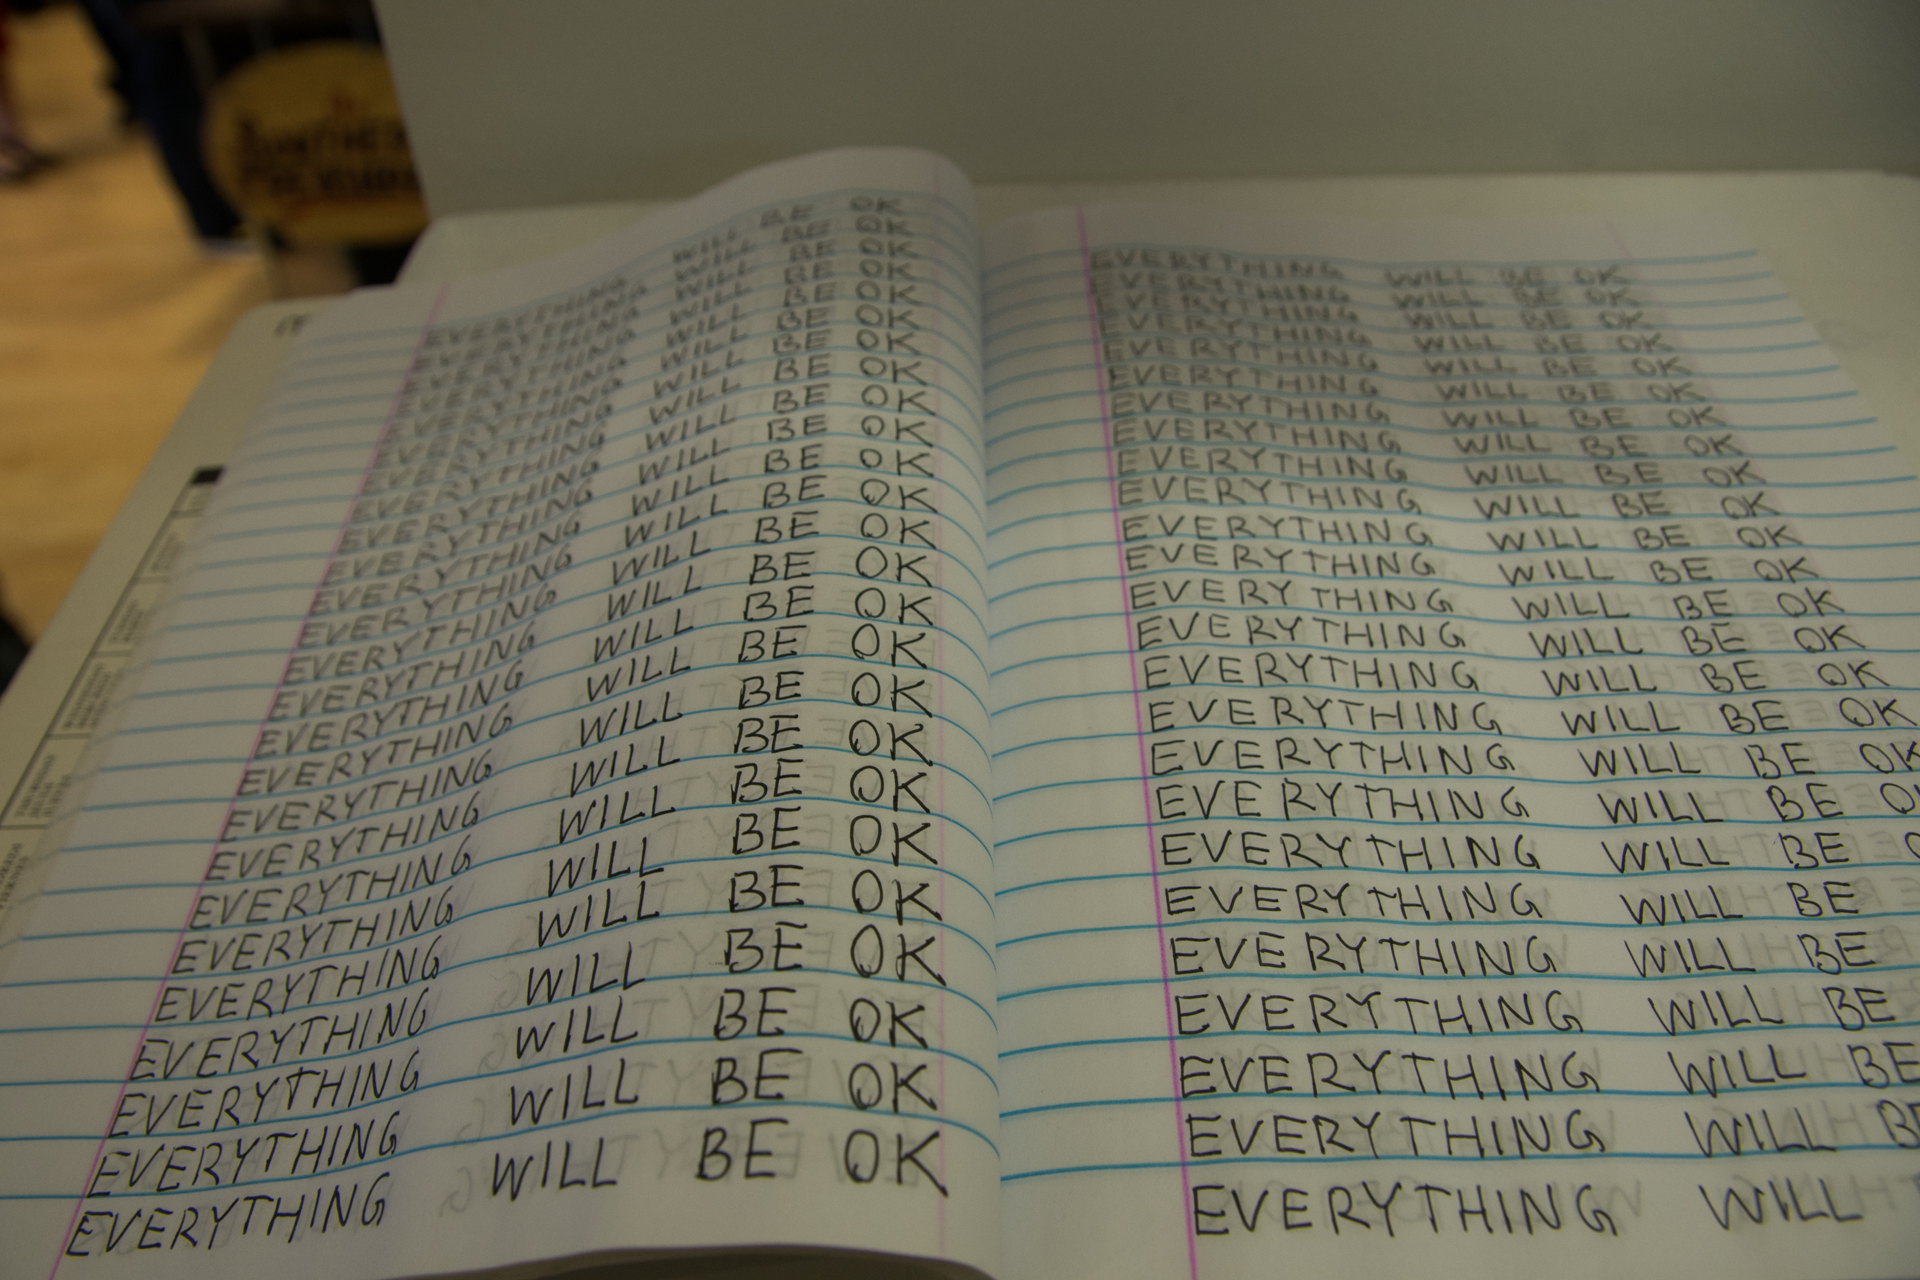 EVERYTHING WILL BE OK
EVERYTHING WILL BE OK
EVERYTHING WILL BE OK
EVERYTHING WILL BE OK
EVERYTHING WILL BE OK
EVERYTHING WILL BE OK
EVERYTHING WILL BE OK
EVERYTHING WILL BE OK
EVERYTHING WILL BE OK
EVERYTHING WILL BE OK
EVERYTHING WILL BE OK
EVERYTHING WILL BE OK
EVERYTHING WILL BE OK
EVERYTHING WILL BE OK
EVERYTHING WILL BE OK
EVERYTHING WILL BE OK
EVERYTHING WILL BE OK
EVERYTHING WILL BE OK
EVERYTHING WILL BE OK
EVERYTHING WILL BE OK
EVERYTHING WILL BE OK
EVERYTHING WILL BE OK
EVERYTHING WILL BE OK
EVERYTHING WILL BE OK
EVERYTHING WILL BE OK
EVERYTHING WILL BE OK
EVERYTHING WILL BE OK
EVERYTHING WILL BE OK
EVERYTHING WILL BE OK
EVERYTHING WILL BE OK
EVERYTHING WILL BE OK
EVERYTHING WILL BE OK
EVERYTHING WILL BE OK
EVERYTHING WILL BE OK
EVERYTHING WILL BE OK
EVERYTHING WILL BE OK
EVERYTHING WILL BE OK
EVERYTHING WILL BE OK
EVERYTHING WILL BE OK
EVERYTHING WILL BE OK
EVERYTHING WILL BE OK
EVERYTHING WILL BE OK
EVERYTHING WILL BE
EVERYTHING WILL BE
EVERYTHING WILL BE
EVERYTHING WILL BE
EVERYTHING WILL BE
EVERYTHING WILL BE
EVERYTHING WILL
EVERYTHING WILL